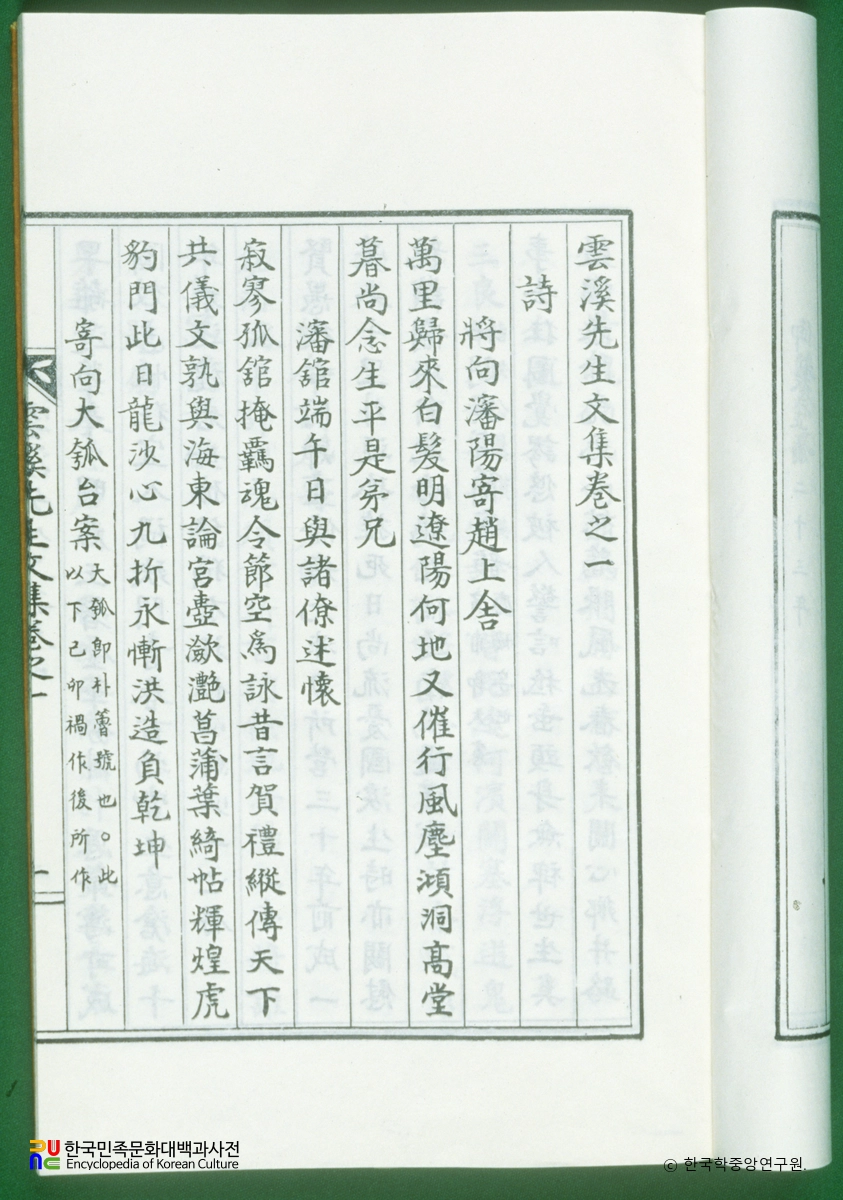 雲溪先生文集卷之一
詩
將向瀋陽寄趙上舍
萬里歸來白髮明遼陽何地又催行風塵澒洞高堂
暮尚念生平是弟兄
瀋舘端午日與諸僚述懷
寂寥孤舘掩羈魂令節空爲詠昔言賀禮縱傳天下
共儀文孰與海東論宮壺瀲灧菖蒲葉綺帖輝煌虎
豹門此日龍沙心九折永慚洪造負乾坤
寄向大瓠台案 大瓠卽朴䔾號也○此
以下己卯禍作後所作
雲溪先生文集卷之一
한국민족문화대백과사전
Encyclopedia of Korean Culture
© 한국학중앙연구원.